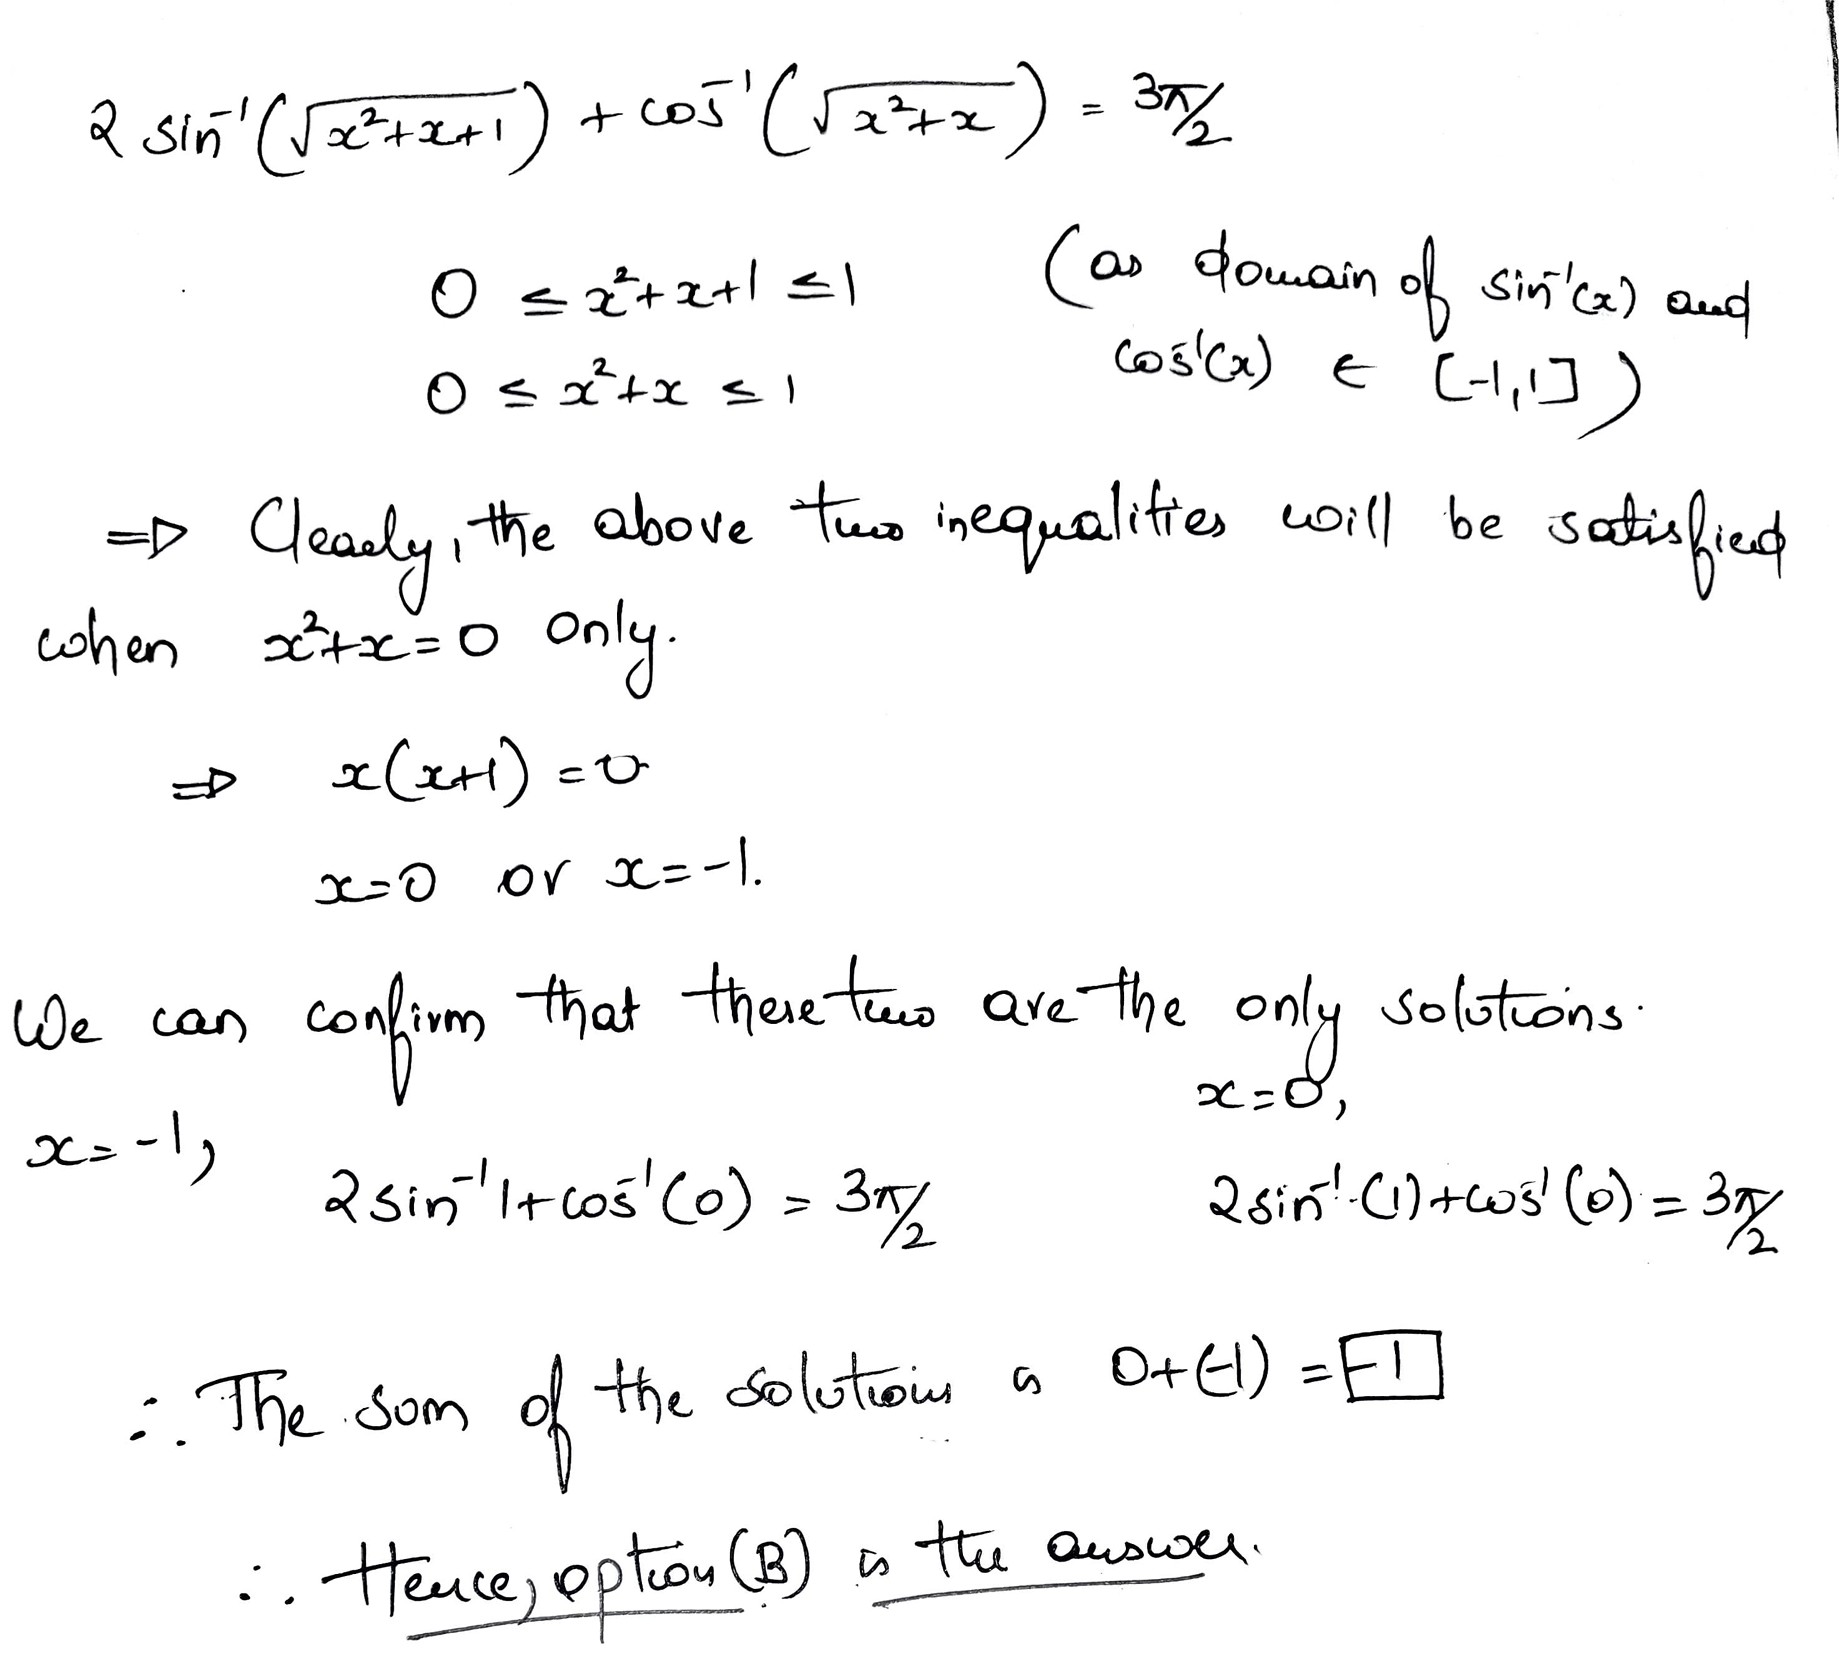 2 sin⁻¹(√x²+x+1) + cos⁻¹(√x²+x) = 3π/2
0 ≤ x²+x+1 ≤ 1 (as domain of sin⁻¹(x) and
0 ≤ x²+x ≤ 1 cos⁻¹(x) ∈ [-1,1])
⇒ Clearly, the above two inequalities will be satisfied
when x²+x=0 only.
⇒ x(x+1)=0
x=0 or x=-1.
We can confirm that these two are the only solutions.
x=-1, x=0,
2sin⁻¹1+cos⁻¹(0) = 3π/2 2sin⁻¹(1)+cos⁻¹(0) = 3π/2
∴ The sum of the solutions is 0+(-1) = -1
∴ Hence, option (B) is the answer.